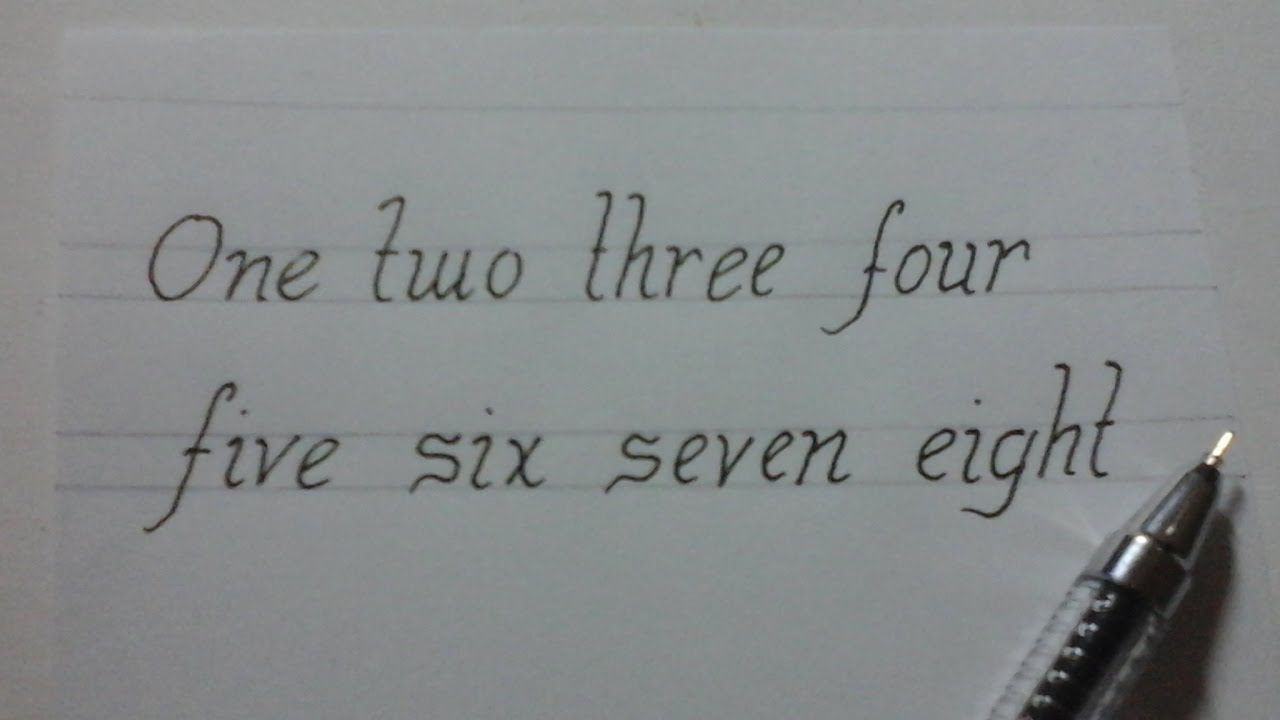 One two three four
five six seven eight